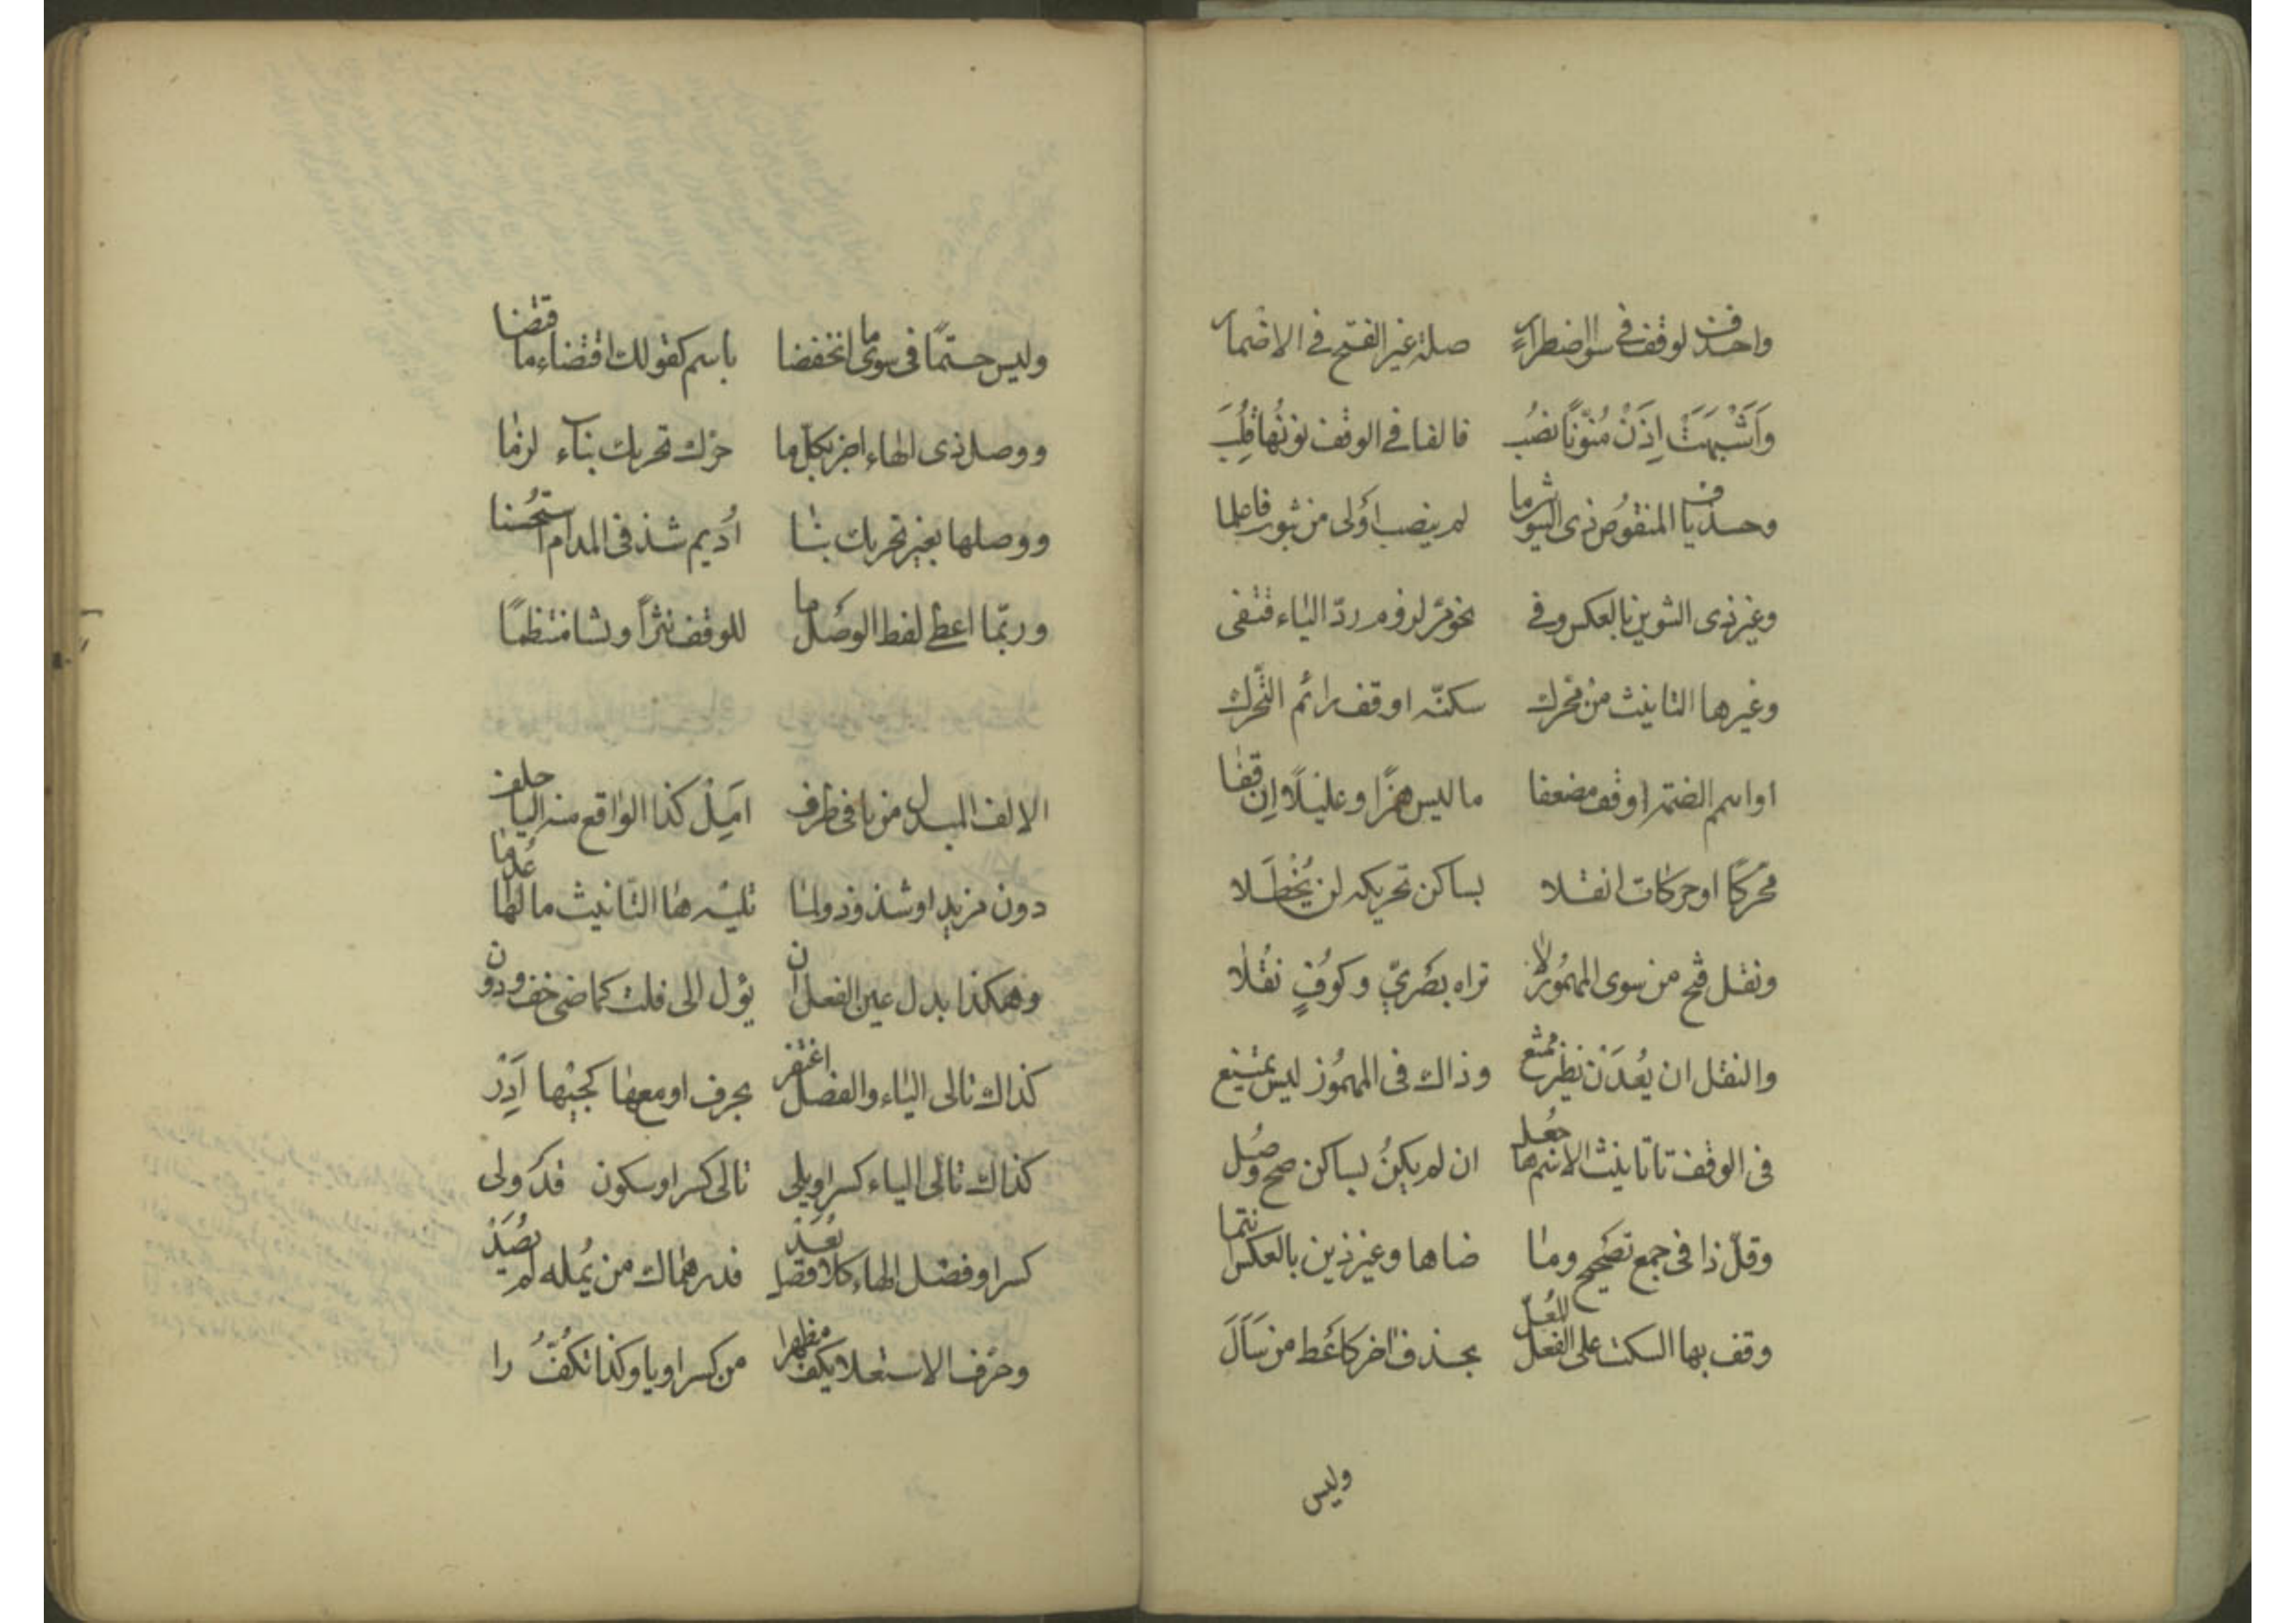 واحذف لوقف في سوى اضطرار صلة غير الفتح في الاضمار
وَاَشْبَهَتْ اِذَنْ مُنَوَّنًا نصُب فالفا في الوقف نونُها قُلِبَ
وحذف يا المنقوص ذى التنوين ما لم ينصب اَولى من ثبوت فاعلما
وغير ذى التنوين بالعكس وفي نحو مُرٍ لزوم ردّ الياء اقتفى
وغيرها التانيث من محرك سكنّه او قف رائم التّحرك
او اشمم الضمّة او قف مضعفا ما ليس همزًا او عليلًا ان قفا
محركًا او حركات انقلا لساكن تحريكه لن يُحْظَلا
ونقل فتح من سوى المهمُوز لا تراه بصَريّ وكوُفٍ نقُلا
والنقل ان يُعدَن نظير ممتنع وذاك في المهمُوز ليس يمتنع
في الوقف تا تانيث الاسم ها جُعل ان لم يكنُ بساكن صح وُصل
وقلّ ذا في جمع تصَحيح وما ضاها وغير ذين بالعكس انتما
وقف بها السكت على الفعل المُعلّ بحذف اخر كاعَط من سَاَلَ
وليس
وليس حتمًا في سوى ما انخفضا باسم كقولك اقتضاء ما قتضا
ووصل ذى الهاء اجز بكل ما حرّك تحريك بناء لزما
ووصلها بغير تحريك بنا اُديم شذ في المدام استحُسنا
وربّما اعطى لفظ الوصَل ما للوقف نثرًا وفشا منتظمًا
الالف المبدل من يا في طرف اَمِلْ كذا الواقع منه اليا خلف
دون مزيد او شذوذ ولما تليه ها التّانيث ما الها عُدما
وهكذا بدل عين الفعل ان يؤل الى فلت كماضى خف ودن
كذاك تالى الياء والفصل اغتفر بحرف او مع ها كجيْبها اَدِرْ
كذاك تالى الياء كسر او يلى تالى كسر او سكون قدَ ولى
كسرا وفصل الها كلا فصل يُعَدْ فدرهماك من يُمله لم يصُدَ
وحرَف الاستعلا يكف مظهرا من كسر او يا وكذا تكُفُّ را